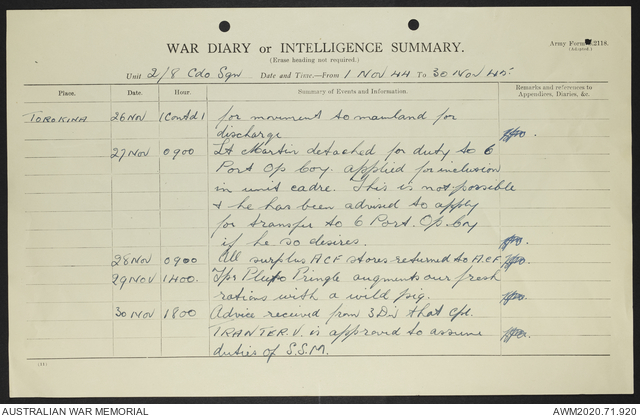 WAR DIARY or INTELLIGENCE SUMMARY.
(Erase heading not required.)
Army Form 2118.
(Adapted.)
Unit 2/8 Cdo Sqn Date and Time.—From 1 Nov 44 To 30 Nov 45.
Place. Date. Hour. Summary of Events and Information. Remarks and references to Appendices, Diaries, &c.
TOROKINA 26 Nov (Contd) for movement to mainland for
discharge
27 Nov 0900 Lt Martin detached for duty to 6
Port Op Coy. applied for inclusion
in unit cadre. This is not possible
& he has been advised to apply
for transfer to 6 Port. Op. Coy
if he so desires.
28 Nov 0900 All surplus ACF stores returned to ACF.
29 Nov 1400. Tpr Pluto Pringle augments our fresh
rations with a wild pig.
30 Nov 1800 Advice received from 3 Div that Cpl.
TRANTER.V. is approved to assume
duties of S.S.M.
AUSTRALIAN WAR MEMORIAL AWM2020.71.920